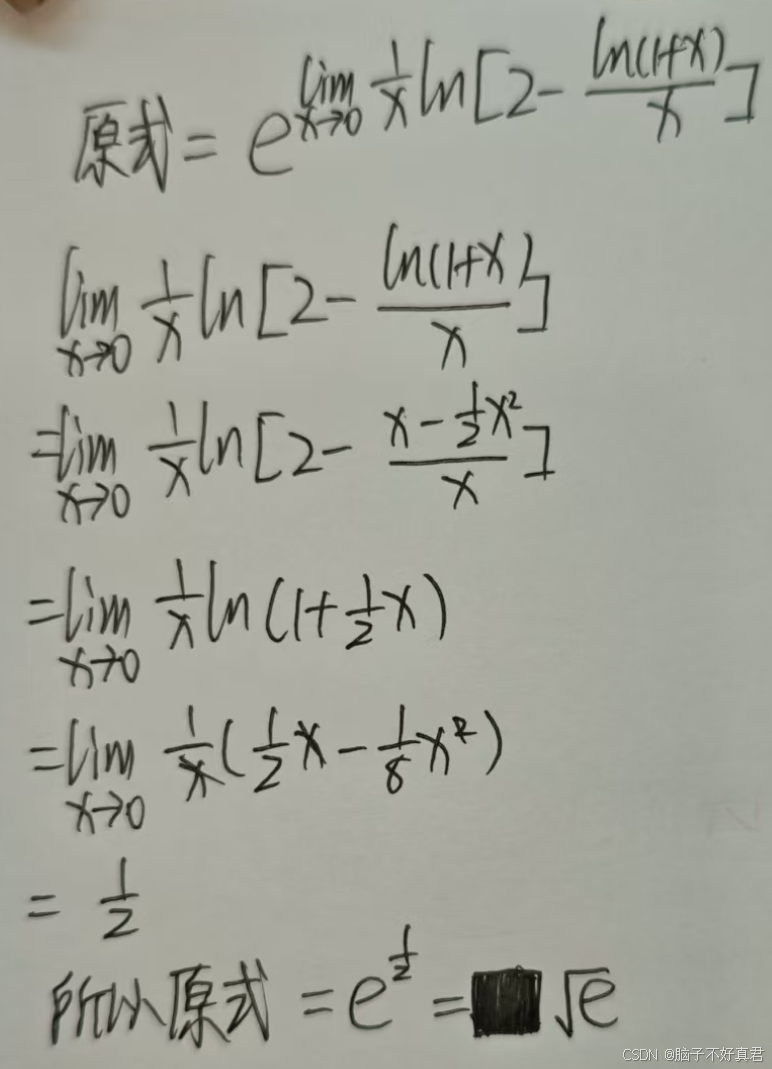 原式 = e^{lim_{x→0} \frac{1}{x} ln[2 - \frac{ln(1+x)}{x}]}
lim_{x→0} \frac{1}{x} ln[2 - \frac{ln(1+x}{x}]
= lim_{x→0} \frac{1}{x} ln[2 - \frac{x - \frac{1}{2}x^2}{x}]
= lim_{x→0} \frac{1}{x} ln(1 + \frac{1}{2}x)
= lim_{x→0} \frac{1}{x}(\frac{1}{2}x - \frac{1}{8}x^2)
= \frac{1}{2}
所以原式 = e^{\frac{1}{2}} = √e
CSDN @脑子不好真君